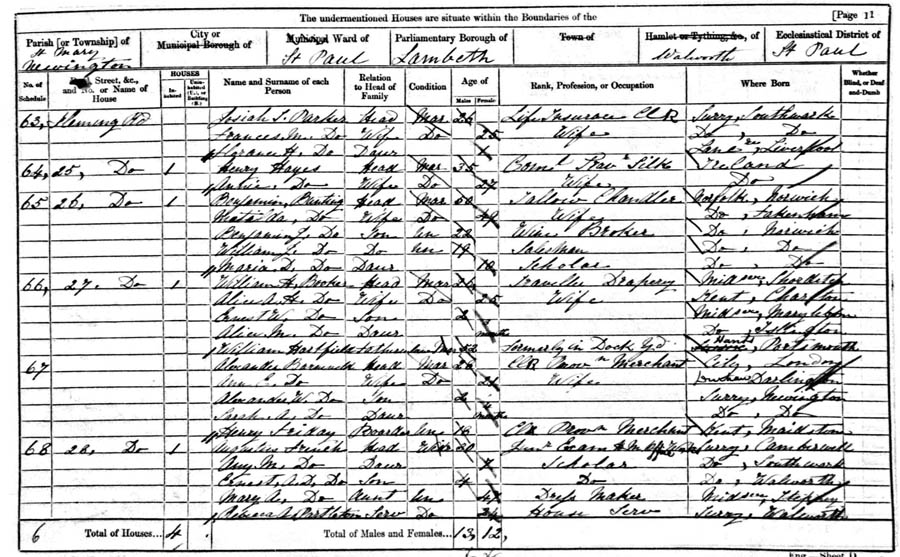 The undermentioned Houses are situate within the Boundaries of the [Page 11
Parish [or Township] of
St. Mary
Newington
City or
Municipal Borough of
Municipal Ward of
St Paul
Parliamentary Borough of
Lambeth
Town of
Hamlet or Tything, &c., of
Walworth
Ecclesiastical District of
St Paul
No. of Schedule
Street, &c., and No. or Name of House
HOUSES
In-habited
Name and Surname of each Person
Relation to Head of Family
Condition
Age of
Males Female
Rank, Profession, or Occupation
Where Born
Whether Blind, or Deaf-and-Dumb
63, Fleming Rd Josiah S. Parker Head Mar 26 Life Insurance Clk Surry, Southwark
Frances M. Do Wife Do 25 Wife Do, Do
Florance H. Do Daur 1 Lancre, Liverpool
64, 25, Do 1 Henry Hayes Head Mar 35 Silk Ireland
Do Wife Do 27 Wife Do
65 26, Do 1 Benjamin Bunting Head Mar 50 Tallow Chandler Norfolk, Norwich
Matilda, Do Wife Do 49 Wife Do, Fakenham
Benjamin J. Do Son Un 22 Wine Broker Do, Norwich
William J. Do Do Un 19 Salesman Do, Do
Maria D. Do Daur 10 Scholar Do, Do
66, 27, Do 1 William H. Booker Head Mar 26 Traveller Drapery Midsex, Shoreditch
Alice A. H. Do Wife Do 25 Wife Kent, Charlton
Ernest W. Do Son 2 Midsex, Marylebon
Alice M. Do Daur months Do, Islington
William Hartfield Fatherinlaw 52 Formerly in Dock Yd. Hants, Portsmouth
67 Alexander Head Mar 26 Clk Provn Merchant City, London
Ann E. Do Wife Do 26 Wife Darlington
Alexander W. Do Son 2 Surry, Newington
Sarah A. Do Daur months Do, Do
Henry Friday Boarder Un 18 Clk Provn Merchant Kent, Maidstone
68 28, Do 1 Augustus French Head 30 Surry, Camberwell
Amy M. Do Daur 7 Scholar Do, Southwark
Ernest A. D. Do Son 4 Do Do, Walworth
Mary A. Do Aunt Un 47 Dress Maker Midsex, Stepney
Rebecca A. Serv Do 24 House Serv Surry, Walworth
6 Total of Houses... 4 Total of Males and Females... 13, 12,
Eng.—Sheet D.